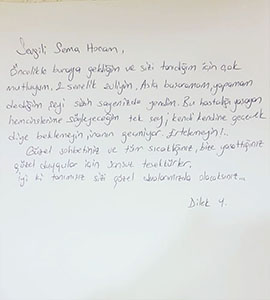 Sevgili Sema Hanım,
Öncelikle buraya geldiğim ve sizi tanıdığım için çok
mutluyum. 2 senelik evliyim. Asla başaramam, yapamam
dediğim şeyi sizin sayenizde yendim. Bu hastalığı yaşayan
hemcinslerime söyleyeceğim tek şey, kendi kendine geçecek
diye beklemeyin, inanın geçmiyor. Ertelemeyin!..
Güzel sohbetiniz ve tüm sıcaklığınız, bize yaşattığınız
güzel duygular için sonsuz teşekkürler.
İyi ki tanımışız sizi güzel dualarımızda olacaksınız...
Dilek Y.